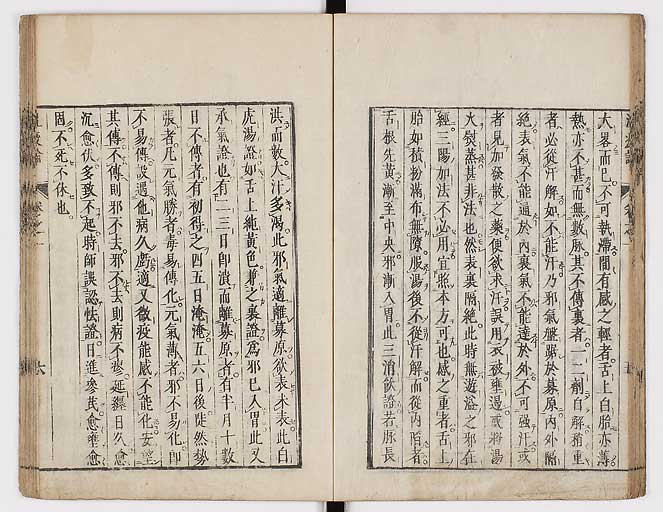 大畧而已不可執滯間有感之輕者舌上白胎亦薄
熱亦不甚而無數脉其不傳裏者一二劑自解稍重
者必從汗解如不能汗乃邪氣盤踞於募原內外隔
絶表氣不能通於內裏氣不能達於外不可強汗或
者見加發散之藥便欲求汗誤用衣被壅遏或將湯
火熨蒸甚非法也然表裏隔絶此時無遊溢之邪在
經三陽加法不必用宜照本方可也感之重者舌上
胎如積粉滿布無隙服湯後不從汗解而從內陷者
舌根先黃漸至中央邪漸入胃此三消飲證若脉長
洪而數大汗多渴此邪氣適離募原欲表未表此白
虎湯證如舌上純黃色兼之裏證為邪已入胃此又
承氣證也有二三日即潰而離募原者有半月十數
日不傳者有初得之四五日淹淹五六日後陡然勢
張者凡元氣勝者毒易傳化元氣薄者邪不易化即
不易傳設遇他病久虧適又微疫能感不能化安望
其傳不傳則邪不去邪不去則病不瘳延纏日久愈
沉愈伏多致不起時師誤認怯證日進參芪愈壅愈
固不死不休也
六